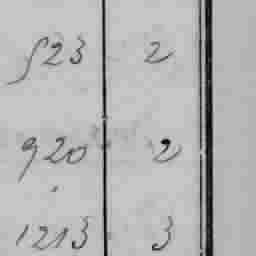 523 2
920 2
1213 3